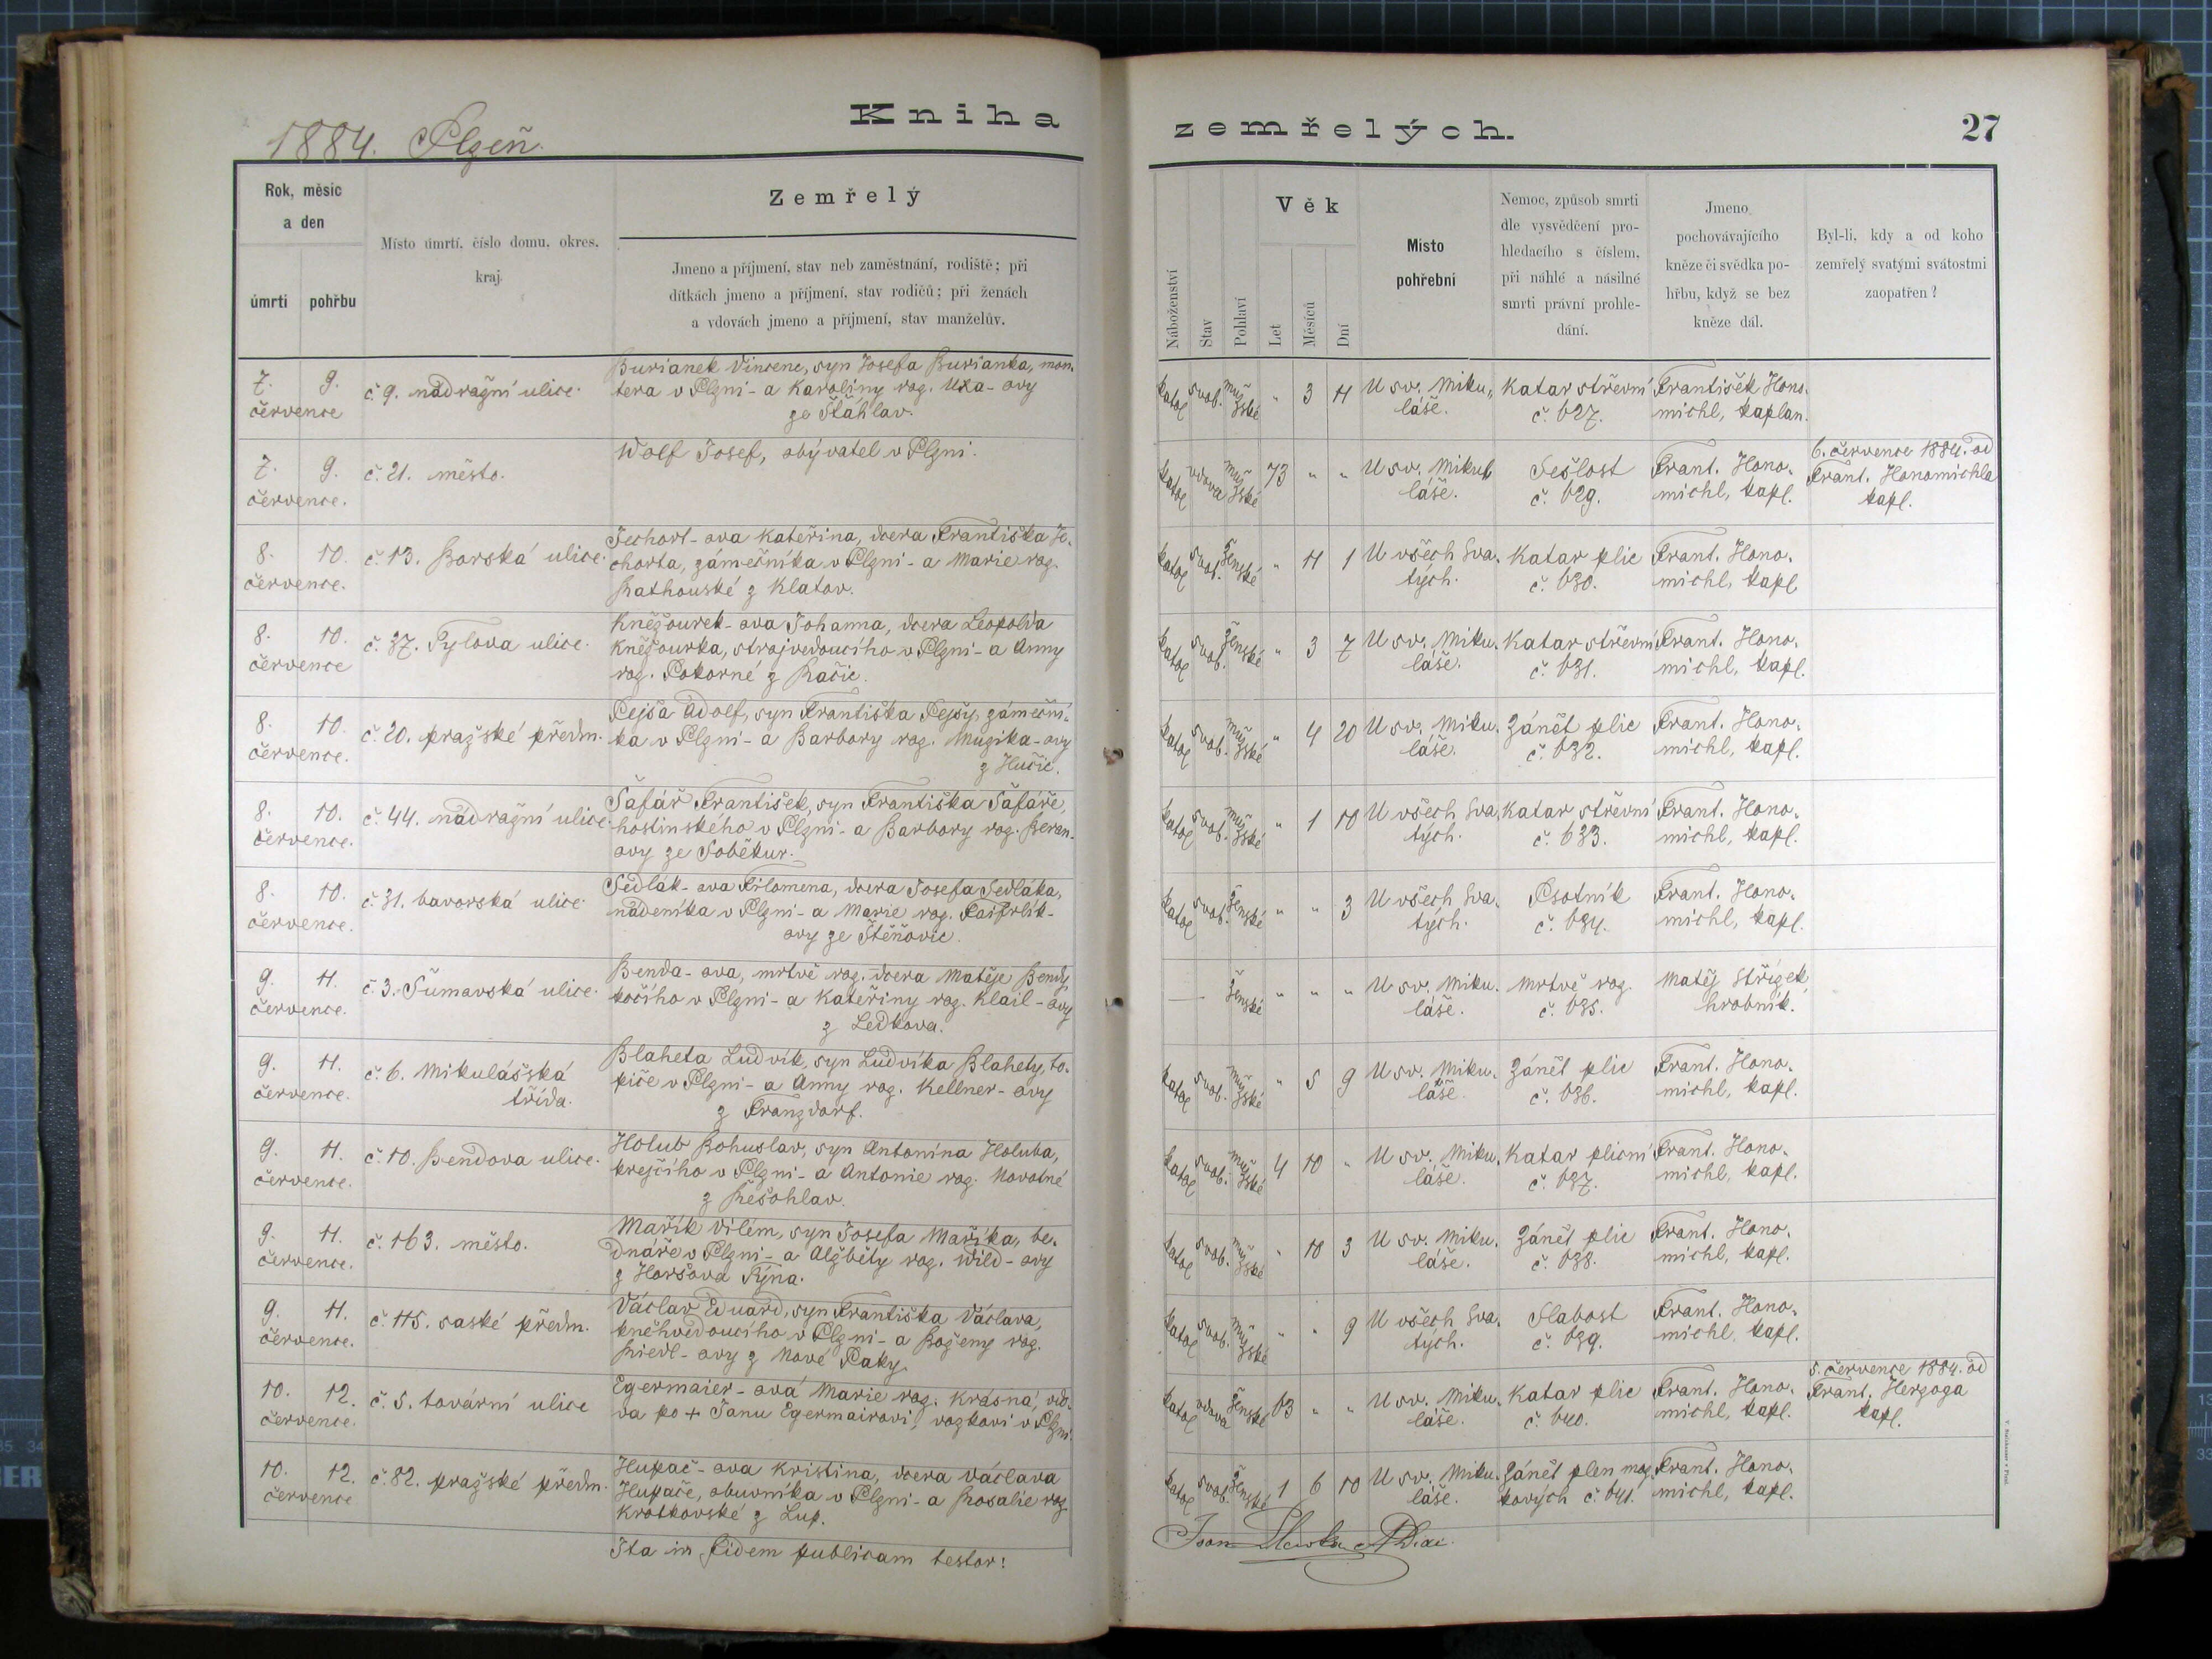 1884. Plzeň.
Kniha zemřelých. 27
Rok, měsíc a den
úmrtí pohřbu
Místo úmrtí, číslo domu, okres, kraj.
Zemřelý
Jmeno a příjmení, stav neb zaměstnání, rodiště; při
dítkách jmeno a příjmení, stav rodičů; při ženách
a vdovách jmeno a příjmení, stav manželův.
Náboženství
Stav
Pohlaví
Věk
Let
Měsíců
Dní
Místo
pohřební
Nemoc, způsob smrti
dle vysvědčení pro-
hledacího s číslem,
při náhlé a násilné
smrti právní prohle-
dání.
Jmeno
pochovávajícího
kněze či svědka po-
hřbu, když se bez
kněze dál.
Byl-li, kdy a od koho
zemřelý svatými svátostmi
zaopatřen?
7. 9.
července
č. 9. nádražní ulice.
Burianek Vincenc, syn Josefa Burianka, mon-
tera v Plzni - a Karoliny roz. Uxa-ovy
ze Štáhlav.
katol svob. mužské " 3 11
U sv. Miku-
láše.
Katar střevní
č. 627.
František Hono-
michl, kaplan.
7. 9.
července.
č. 21. město.
Wolf Josef, obývatel v Plzni.
katol vdova mužské 73 " "
U sv. Miku-
láše.
Sešlost
č. 629.
Frant. Hono-
michl, kapl.
6. července 1884. od
Frant. Honomichla
kapl.
8. 10.
července.
č. 13. Borská ulice.
Jechort-ova Kateřina, dcera Františka Je-
chorta, zámečníka v Plzni - a Marie roz.
Rathouské z Klatov.
katol svob. ženské " 11 1
U všech Sva-
tých.
Katar plic
č. 630.
Frant. Hono-
michl, kapl
8. 10.
července
č. 37. Tylova ulice.
Kněžourek-ova Johanna, dcera Leopolda
Kněžourka, strojvedoucího v Plzni - a Anny
roz. Pokorné z Račic.
katol svob. ženské " 3 7
U sv. Miku-
láše.
Katar střevní
č. 631.
Frant. Hono-
michl, kapl.
8. 10.
července.
č. 20. pražské předm.
Pejša Adolf, syn Františka Pejšy, zámeční-
ka v Plzni - a Barbory roz. Muzika-ovy
z Hučic.
katol svob. mužské " 4 20
U sv. Miku-
láše.
Zánět plic
č. 632.
Frant. Hono-
michl, kapl.
8. 10.
července.
č. 44. nádražní ulice.
Šafář František, syn Františka Šafáře,
hostinského v Plzni - a Barbory roz. Beran-
ovy ze Soběkur.
katol svob. mužské " 1 10
U všech Sva-
tých.
Katar střevní
č. 633.
Frant. Hono-
michl, kapl.
8. 10.
července.
č. 31. bavorská ulice.
Sedlák-ova Filomena, dcera Josefa Sedláka,
nádeníka v Plzni - a Marie roz.
ovy ze Štěňovic.
katol svob. ženské " " 3
U všech Sva-
tých.
Psotník
č. 634.
Frant. Hono-
michl, kapl.
9. 11.
července.
č. 3. Šumavská ulice.
Benda-ova, mrtvě roz. dcera Matěje Bendy,
kočího v Plzni - a Kateřiny roz. Klail-ovy
z Ledkova.
— ženské " " "
U sv. Miku-
láše.
Mrtvě roz.
č. 635.
Matěj Střízek,
hrobník.
9. 11.
července.
č. 6. Mikulášská
třída.
Blaheta Ludvík, syn Ludvíka Blahety, to-
piče v Plzni - a Anny roz. Kellner-ovy
z Franzdorf.
katol svob. mužské " 5 9
U sv. Miku-
láše.
Zánět plic
č. 636.
Frant. Hono-
michl, kapl.
9. 11.
července.
č. 10. Bendova ulice.
Holub Bohuslav, syn Antonína Holuba,
krejčího v Plzni - a Antonie roz. Novotné
z Řešohlav.
katol svob. mužské 4 10 "
U sv. Miku-
láše.
Katar plicní
č. 637.
Frant. Hono-
michl, kapl.
9. 11.
července.
č. 163. město.
Mařík Vilém, syn Josefa Maříka, be-
dnáře v Plzni - a Alžběty roz. Wild-ovy
z Horšova Týna.
katol svob. mužské " 10 3
U sv. Miku-
láše.
Zánět plic
č. 638.
Frant. Hono-
michl, kapl.
9. 11.
července.
č. 115. saské předm.
Václav Eduard, syn Františka Václava,
kněhvedoucího v Plzni - a Boženy roz.
Riedl-ovy z Nové Paky.
katol svob. mužské " " 9
U všech Sva-
tých.
Slabost
č. 639.
Frant. Hono-
michl, kapl.
10. 12.
července.
č. 5. tovární ulice
Egermaier-ová Marie roz. Krásná, vdo-
va po + Janu Egermairovi, vozkovi v Plzni.
katol vdova ženské 63 " "
U sv. Miku-
láše.
Katar plic
č. 640.
Frant. Hono-
michl, kapl.
5. července 1884. od
Frant. Herzoga
kapl.
10. 12.
července
č. 82. pražské předm.
Hupač-ova Kristina, dcera Václava
Hupače, obuvníka v Plzni - a Rosalie roz.
Krotkovské z Lup.
katol svob. ženské 1 6 10
U sv. Miku-
láše.
Zánět plen moz-
kových č. 641.
Frant. Hono-
michl, kapl.
Ita in fidem publicam testor: